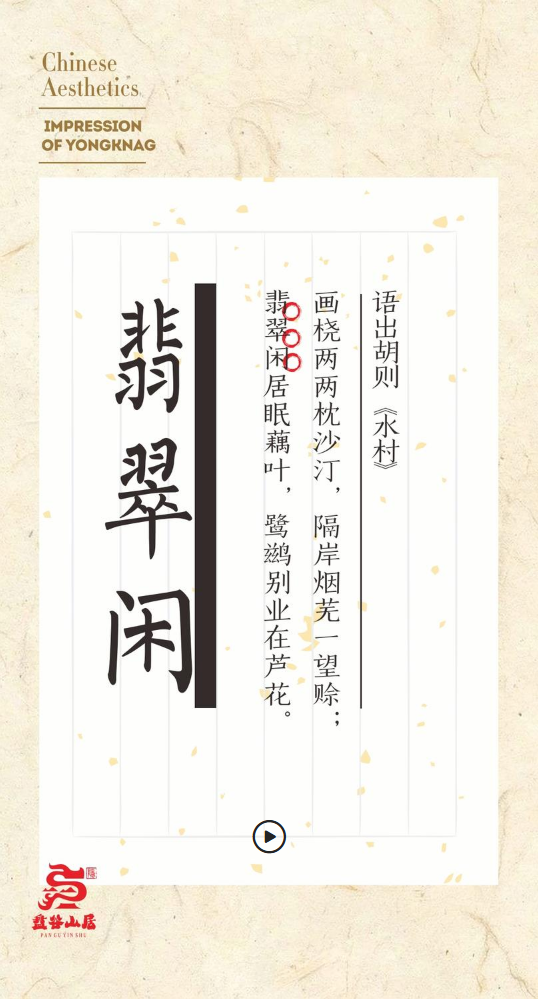 Chinese
Aesthetics
IMPRESSION
OF YONGKNAG
语出胡则《水村》
画桡两两枕沙汀，隔岸烟芜一望赊；
翡翠闲居眠藕叶，鹭鹚别业在芦花。
翡翠闲
盘谷山居
PAN GU YIN SHU